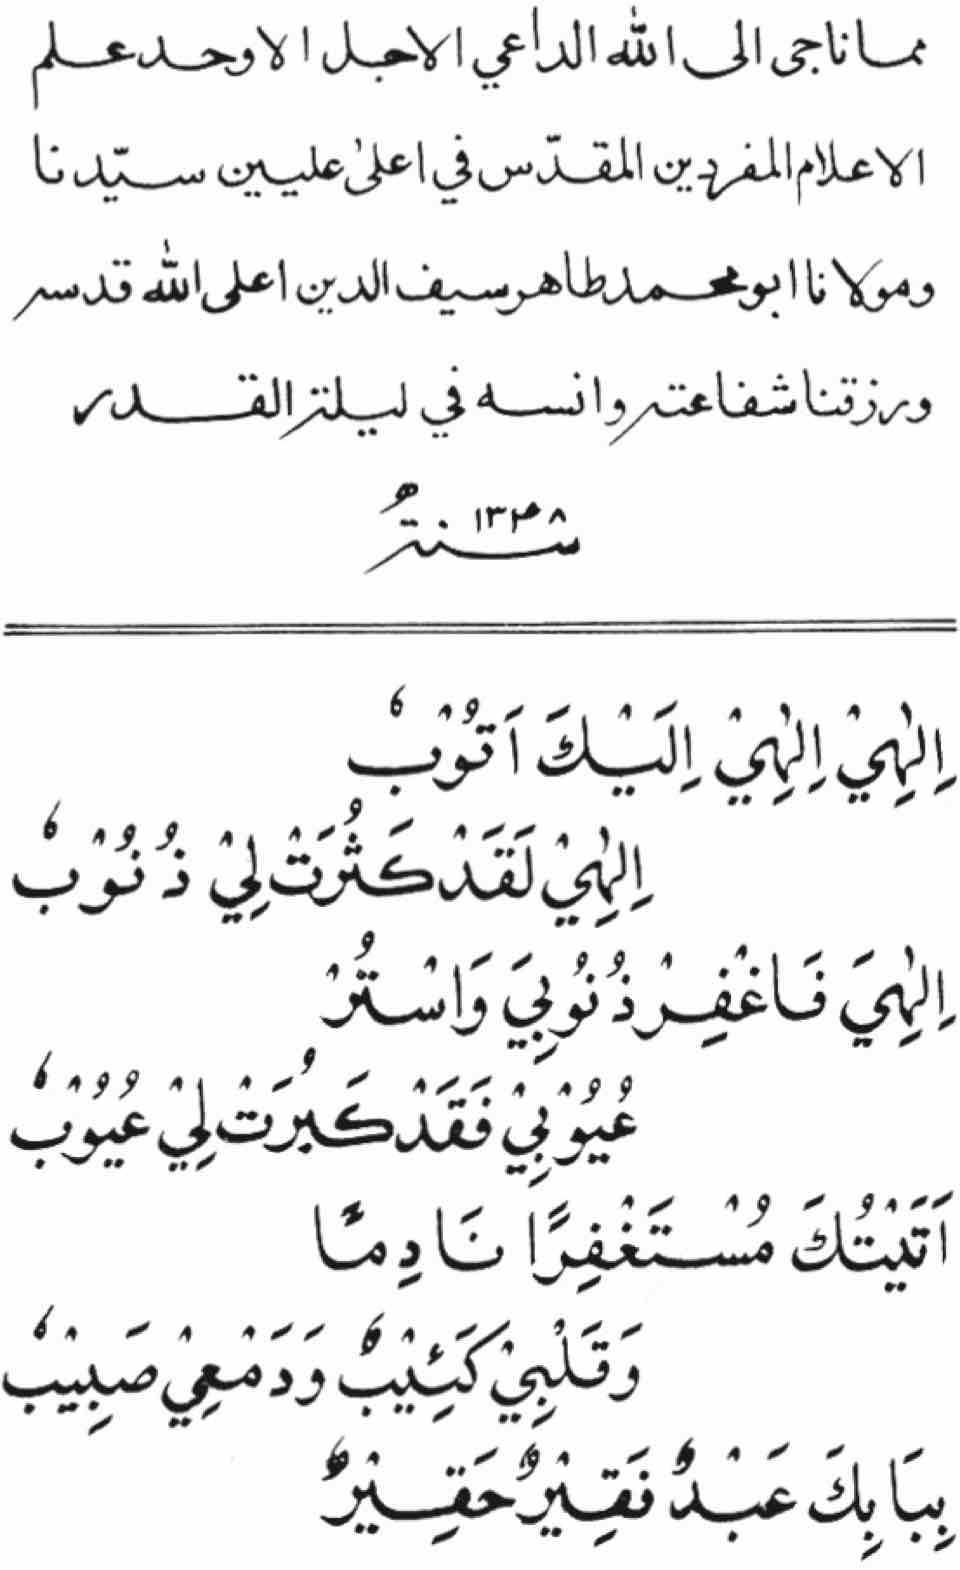 مما ناجى الى الله الداعي الاجل الاوحد علم
الاعلام المفردين المقدّس في اعلىٰ عليين سيّدنا
ومولانا ابو محمد طاهر سيف الدين اعلى الله قدسه
ورزقنا شفاعته وانسه في ليلة القدر
سنة ١٣٤٨ھ
اِلٰهِيْ اِلٰهِيْ اِلَيْكَ اَتُوْبُ
اِلٰهِيْ لَقَدْ كَثُرَتْ لِيْ ذُنُوْبُ
اِلٰهِيَ فَاغْفِرْ ذُنُوبِيَ وَاسْتُرْ
عُيُوْبِيْ فَقَدْ كَبُرَتْ لِيْ عُيُوْبُ
اَتَيْتُكَ مُسْتَغْفِرًا نَادِمًا
وَقَلْبِيْ كَئِيْبٌ وَدَمْعِيْ صَبِيْبُ
بِبَابِكَ عَبْدٌ فَقِيْرٌ حَقِيْرٌ